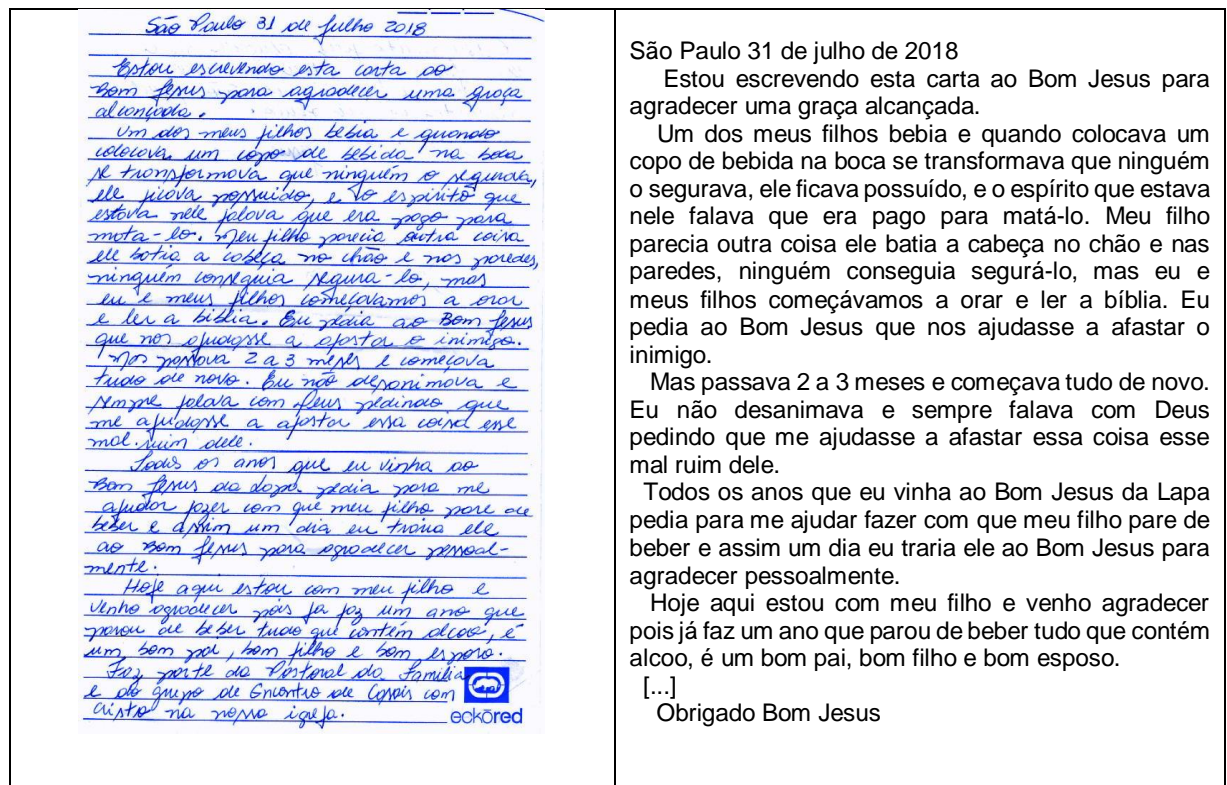 São Paulo 31 de julho 2018
Estou escrevendo esta carta ao
Bom Jesus para agradecer uma graça
alcançada.
Um dos meus filhos bebia e quando
colocova um copo de bebida na boca
se transformova que ninguém o segurava,
ele ficova possuido, e o espirito que
estova nele falova que era pago para
mota-lo. Meu filho parecia outra coisa
ele botia a cabeça no chão e nos paredes,
ninguém conseguia segura-lo, mas
eu e meus filhos começavamos a orar
e ler a biblia. Eu pedia ao Bom Jesus
que nos ajudasse a afastar o inimigo.
Mas passova 2 a 3 meses e começova
tudo de novo. Eu não desanimova e
sempre falava com Deus pedindo que
me ajudasse a afastar essa coisa esse
mal ruim dele.
Todos os anos que eu vinha ao
Bom Jesus da Lapa pedia para me
ajudar fazer com que meu filho pare de
beber e assim um dia eu traria ele
ao Bom Jesus para agradecer pessoal-
mente.
Hoje aqui estou com meu filho e
venho agradecer pois ja faz um ano que
parou de beber tudo que contém alcoo, é
um bom pai, bom filho e bom esposo.
Faz parte da Pastoral da Familia
e do grupo de Encontro de Casais com
Cristo na nossa igreja.
eckōred
São Paulo 31 de julho de 2018
Estou escrevendo esta carta ao Bom Jesus para
agradecer uma graça alcançada.
Um dos meus filhos bebia e quando colocava um
copo de bebida na boca se transformava que ninguém
o segurava, ele ficava possuído, e o espírito que estava
nele falava que era pago para matá-lo. Meu filho
parecia outra coisa ele batia a cabeça no chão e nas
paredes, ninguém conseguia segurá-lo, mas eu e
meus filhos começávamos a orar e ler a bíblia. Eu
pedia ao Bom Jesus que nos ajudasse a afastar o
inimigo.
Mas passava 2 a 3 meses e começava tudo de novo.
Eu não desanimava e sempre falava com Deus
pedindo que me ajudasse a afastar essa coisa esse
mal ruim dele.
Todos os anos que eu vinha ao Bom Jesus da Lapa
pedia para me ajudar fazer com que meu filho pare de
beber e assim um dia eu traria ele ao Bom Jesus para
agradecer pessoalmente.
Hoje aqui estou com meu filho e venho agradecer
pois já faz um ano que parou de beber tudo que contém
alcoo, é um bom pai, bom filho e bom esposo.
[...]
Obrigado Bom Jesus